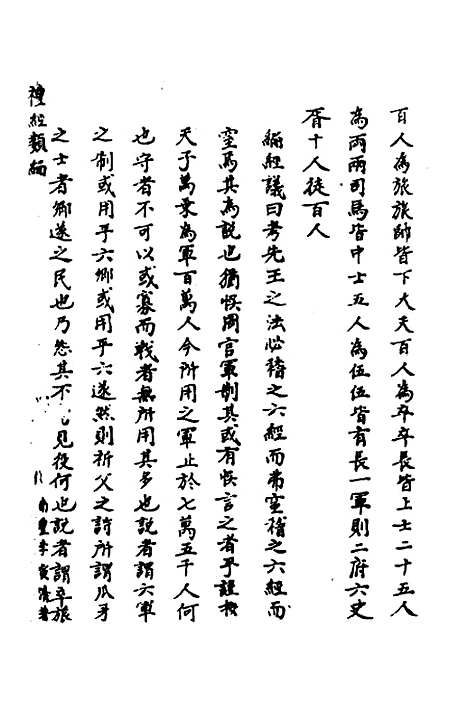 百人為旅旅師皆下大夫百人為卒卒長皆上士二十五人
為兩兩司馬皆中士五人為伍伍皆有長一軍則二府六史
胥十人徒百人
編經議曰考先王之法必稽之六經而嘗空稽之六經而
空焉其為說也猶悞周官軍制其或有悞言之者乎謹按
天子萬乘為軍百萬人今所用之軍止於七萬五千人何
也守者不可以或寡而戰者無所用其多也說者謂六軍
之制或用乎六鄉或用乎六遂然則祈父之詩所謂爪牙
之士者鄉遂之民也乃怨其不見役何也說者謂卒旅
禮經類編
南豐李寅清著